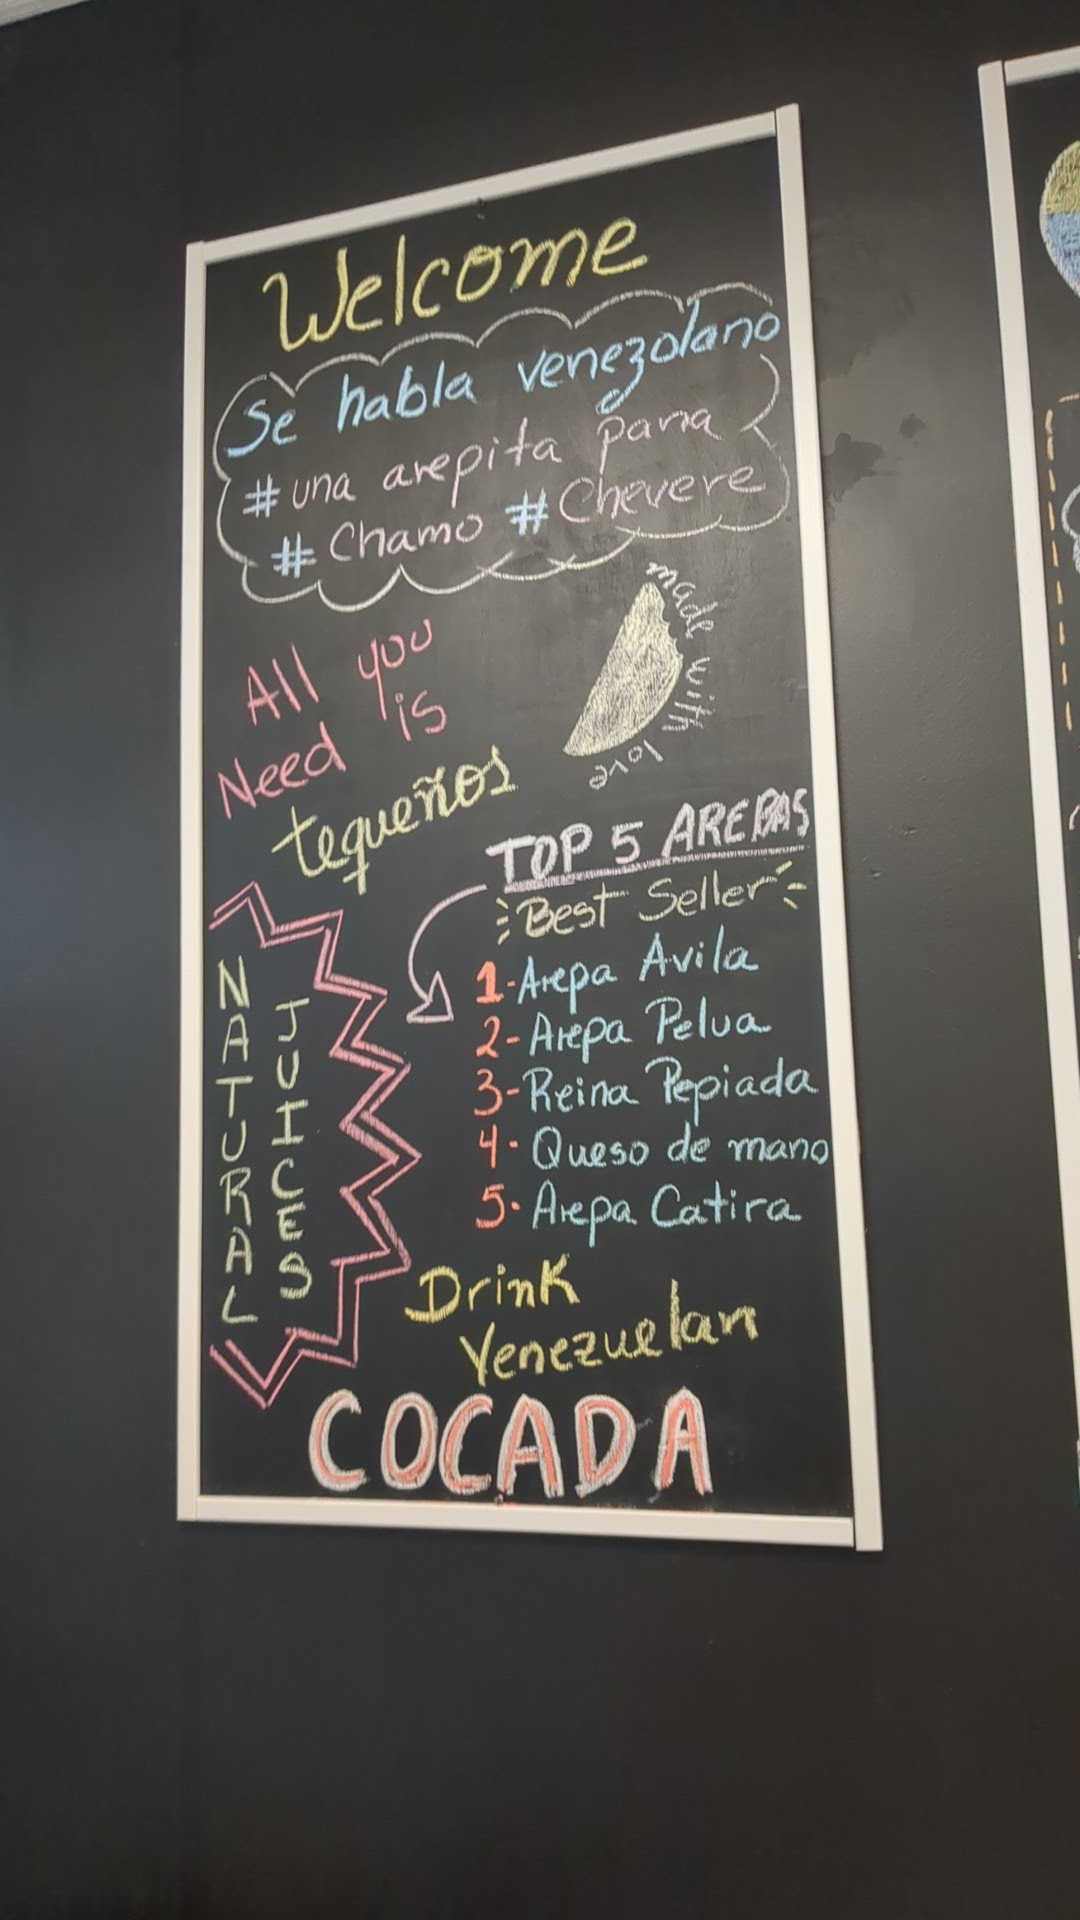 Welcome
Se habla venezolano
#una arepita pana
#Chamo #Chevere
made with love
All you
Need is
tequeños
TOP 5 AREPAS
Best Seller
1-Arepa Avila
2-Arepa Pelua
3-Reina Pepiada
4-Queso de mano
5-Arepa Catira
NATURAL
JUICES
Drink
Venezuelan
COCADA